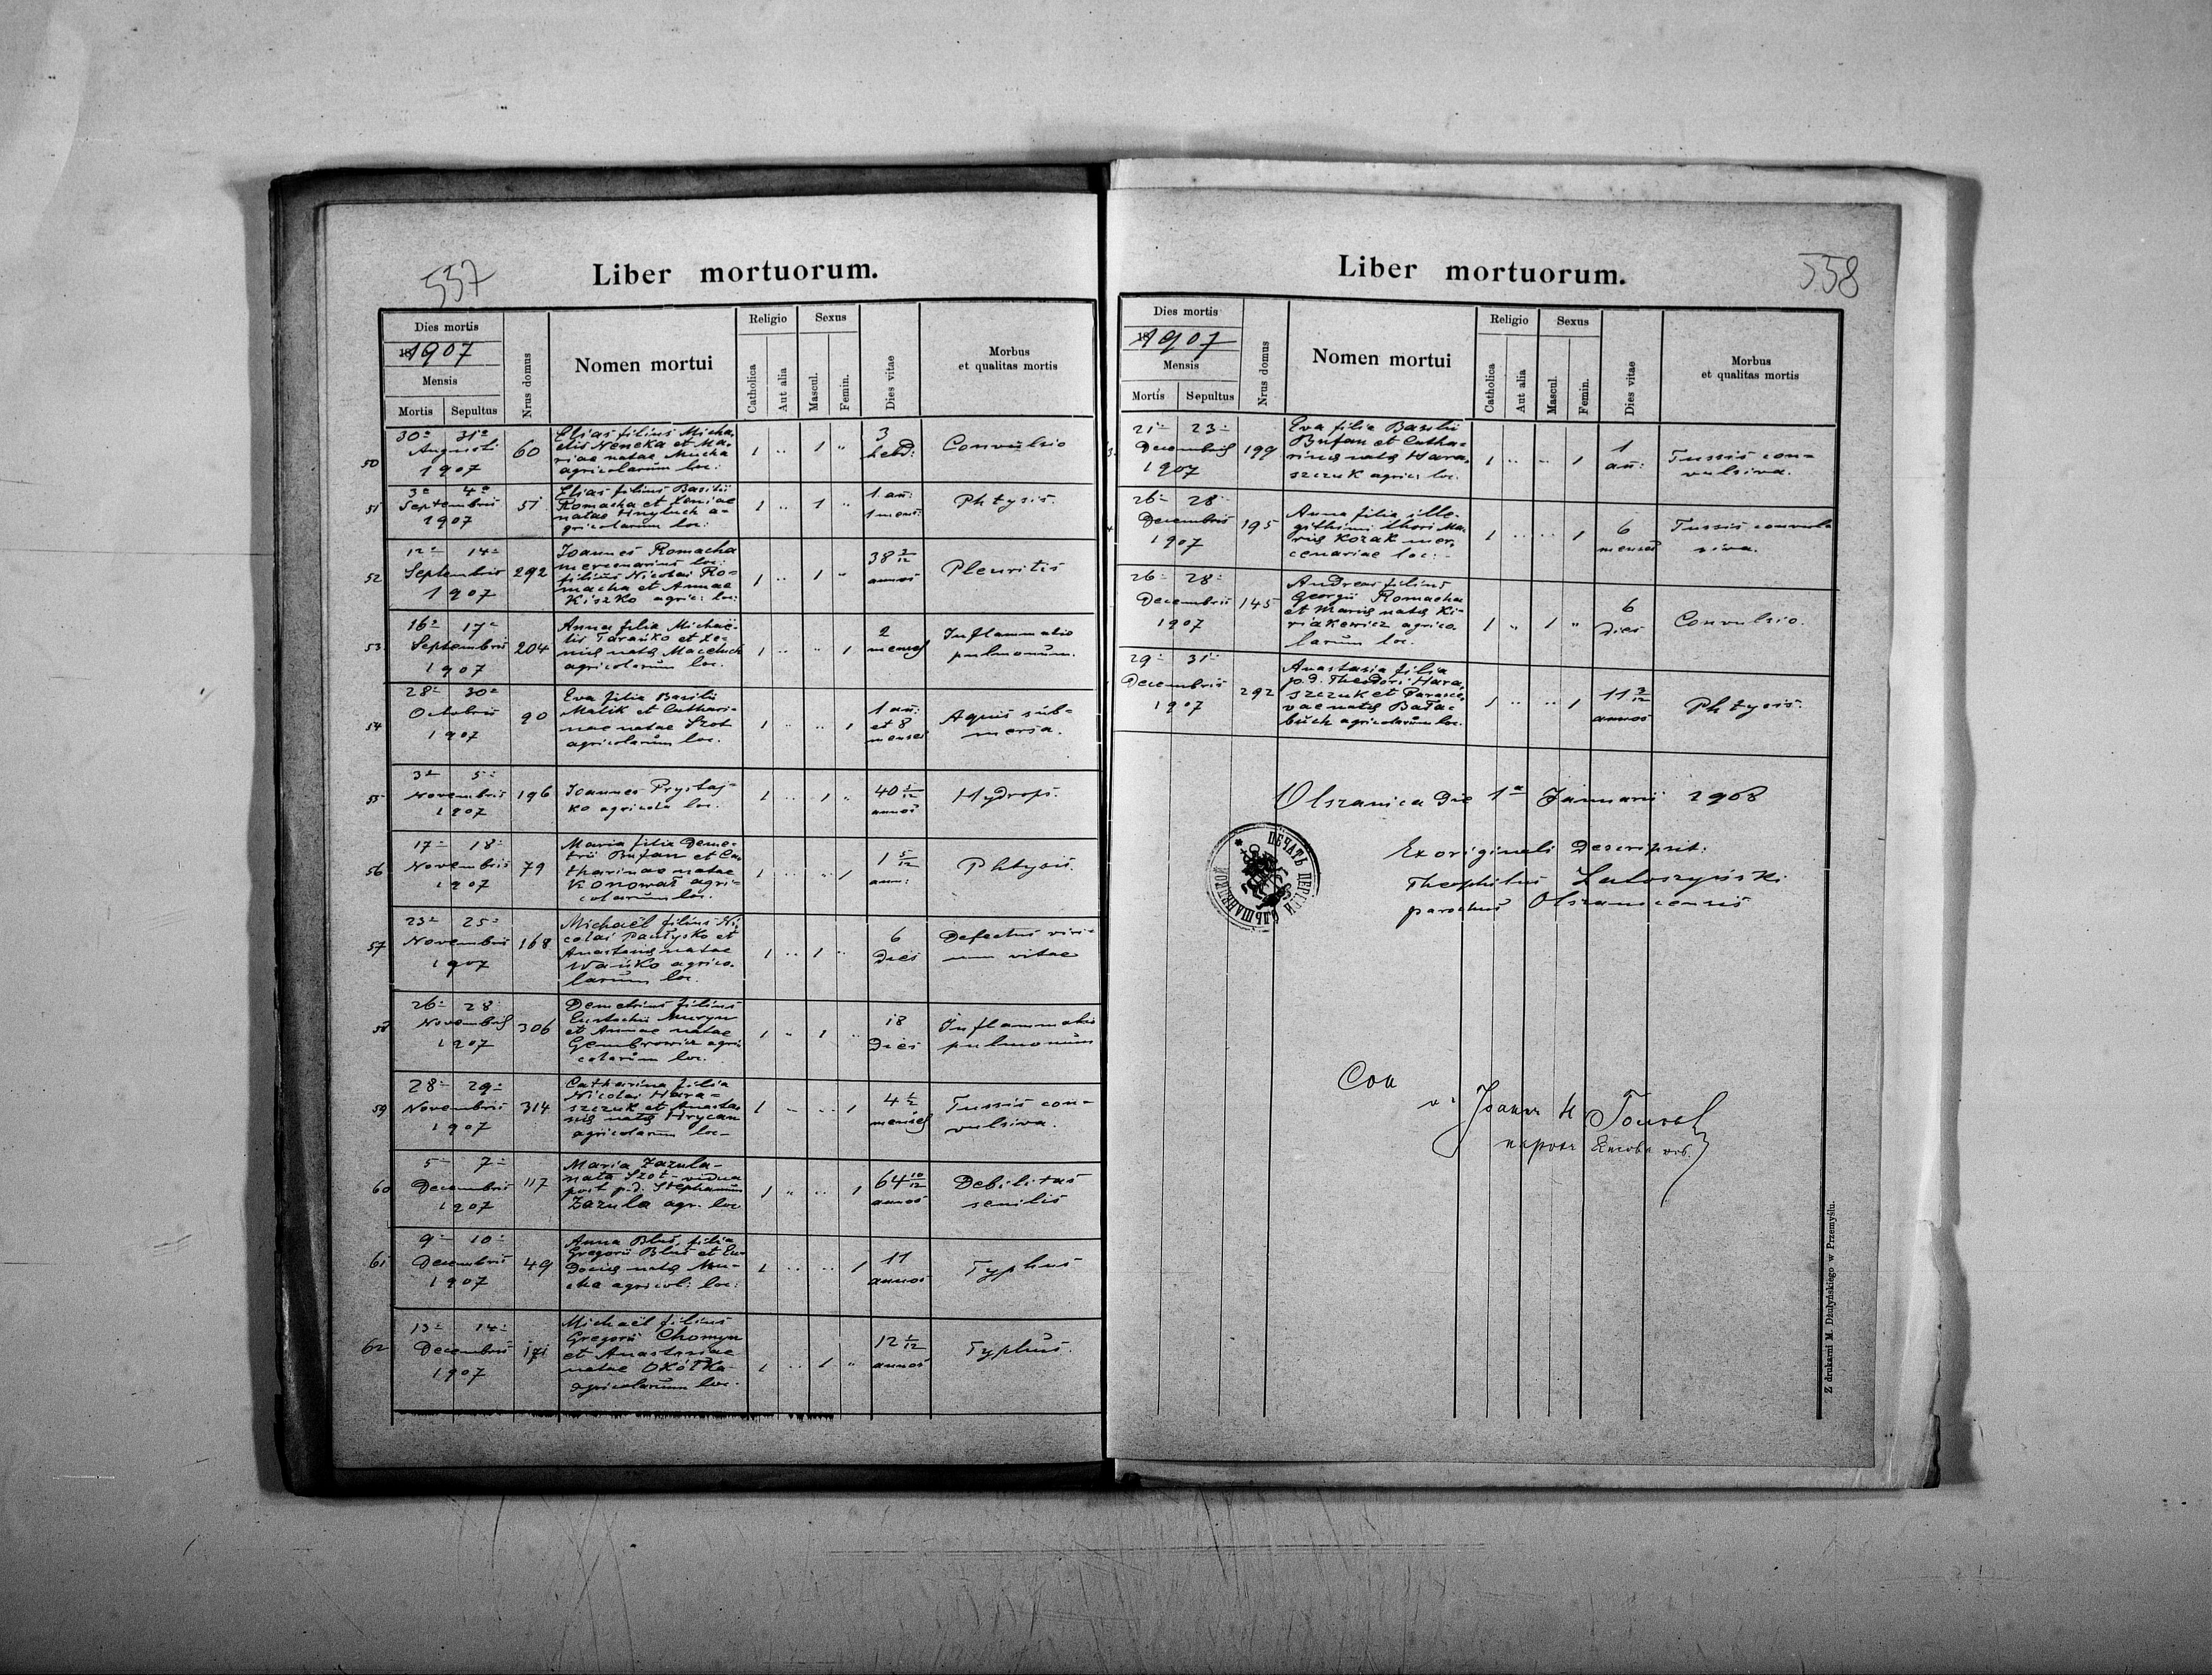 557
Liber mortuorum.
Dies mortis
1907
Mensis
Mortis Sepultus
Nrus domus
Nomen mortui
Religio
Catholica
Aut alia
Sexus
Mascul.
Femin.
Dies vitae
Morbus
et qualitas mortis
50
30a 31a
Augusti
1907
60
Elias filius Micha-
elis Neneka et Ma-
riae natae Mucha
agricolarum loc:
1 " 1 "
3
hebd:
Convulsio
51
3a 4a
Septembris
1907
51
Elias filius Basilii
Romacha et Xeniae
natae Hnytuch a-
gricolarum loc:
1 " 1 "
1 an:
1 mens:
Phtysis.
52
12a 14a
Septembris
1907
292
Joannes Romacha
mercenarius loc:
filius Nicolai Ro-
macha et Annae
Kiszko agric: loc:
1 " 1 "
38 3/12
annos
Pleuritis
53
16a 17a
Septembris
1907
204
Anna filia Michaë-
lis Tarańko et Xe-
nię natę Maceluch
agricolarum loc.
1 " " 1
2
menses
Inflammatio
pulmonum.
54
28a 30a
Octobris
1907
90
Eva filia Basilii
Malik et Cathari-
nae natae Szot
agricolarum loc.
1 " " 1
1 an:
et 8
menses
Aquis sub-
mersa.
55
3a 5a
Novembris
1907
196
Joannes Prystaj-
ko agricola loc.
1 " 1 "
40 1/12
annos
Hydrops.
56
17a 18a
Novembris
1907
79
Maria filia Deme-
trii Bufan et Ca-
tharinae natae
Konował agri-
colarum loc.
1 " " 1
1 5/12
ann:
Phtysis.
57
23a 25a
Novembris
1907
168
Michaël filius Ni-
colai Pawłysko et
Anastasię natae
Wańko agrico-
larum loc.
1 " 1 "
6
dies
Defectus viri-
um vitae
58
26a 28a
Novembris
1907
306
Demetrius filius
Eustachii Muryn
et Annae natae
Gembrowicz agri
colarum loc.
1 " 1 "
18
Dies
Inflammatio
pulmonum
59
28a 29a
Novembris
1907
314
Catharina filia
Nicolai Hara-
szczuk et Anasta-
się natę Hrycan
agricolarum loc-
1 " " 1
4 1/2
menses
Tussis con-
vulsiva.
60
5a 7a
Decembris
1907
117
Maria Zazula-
nata Szot- vidua
post p.d. Stephanum
Zazula agr. loc
1 " " 1
64 10/12
annos
Debilitas
senilis
61
9a 10a
Decembris
1907
49
Anna Bluś, filia
Gregorii Bluś et Eu-
docię natę Mu-
cha agricol: loc:
1 " " 1
11
annos
Typhus
62
13a 14a
Decembris
1907
171
Michaël filius
Gregorii Chomyn
et Anastasiae
natae Okółka
agricolarum loc.
1 " 1 "
12 1/12
annos
Typhus.
558
Liber mortuorum.
Dies mortis
1907
Mensis
Mortis Sepultus
Nrus domus
Nomen mortui
Religio
Catholica
Aut alia
Sexus
Mascul.
Femin.
Dies vitae
Morbus
et qualitas mortis
21a 23a
Decembris
1907
199
Eva filia Basilii
Bufan et Catha-
rinę natę Hara-
szczuk agric: loc.
1 " " 1
1
an:
Tussis con-
vulsiva.
26a 28
Decembris
1907
195
Anna filia ille-
githimi thori Ma-
rię Kozak mer-
cenariae loc:
1 " " 1
6
menses
Tussis convul-
siva.
26a 28a
Decembris
1907
145
Andreas filius
Georgii Romacha
et Marię natę Ki-
riakewicz agrico-
larum loc.
1 " 1 "
6
dies
Convulsio.
29a 31a
Decembris
1907
292
Anastasia filia
p.d. Theodori Hara-
szczuk et Parasce-
vae natę Bała-
buch agricolarum loc.
1 " " 1
11 2/12
annos
Phtysis.
Olszanica die 1a Januarii 1908
Ex originali descripsit:
Theophilus Zatoszyński
parochus Olszanicensis
ПЕЧАТЬ ЦЕРКВИ ОЛЬШАНЕЦКОЙ
Z drukarni M. Dżułyńskiego w Przemyślu.